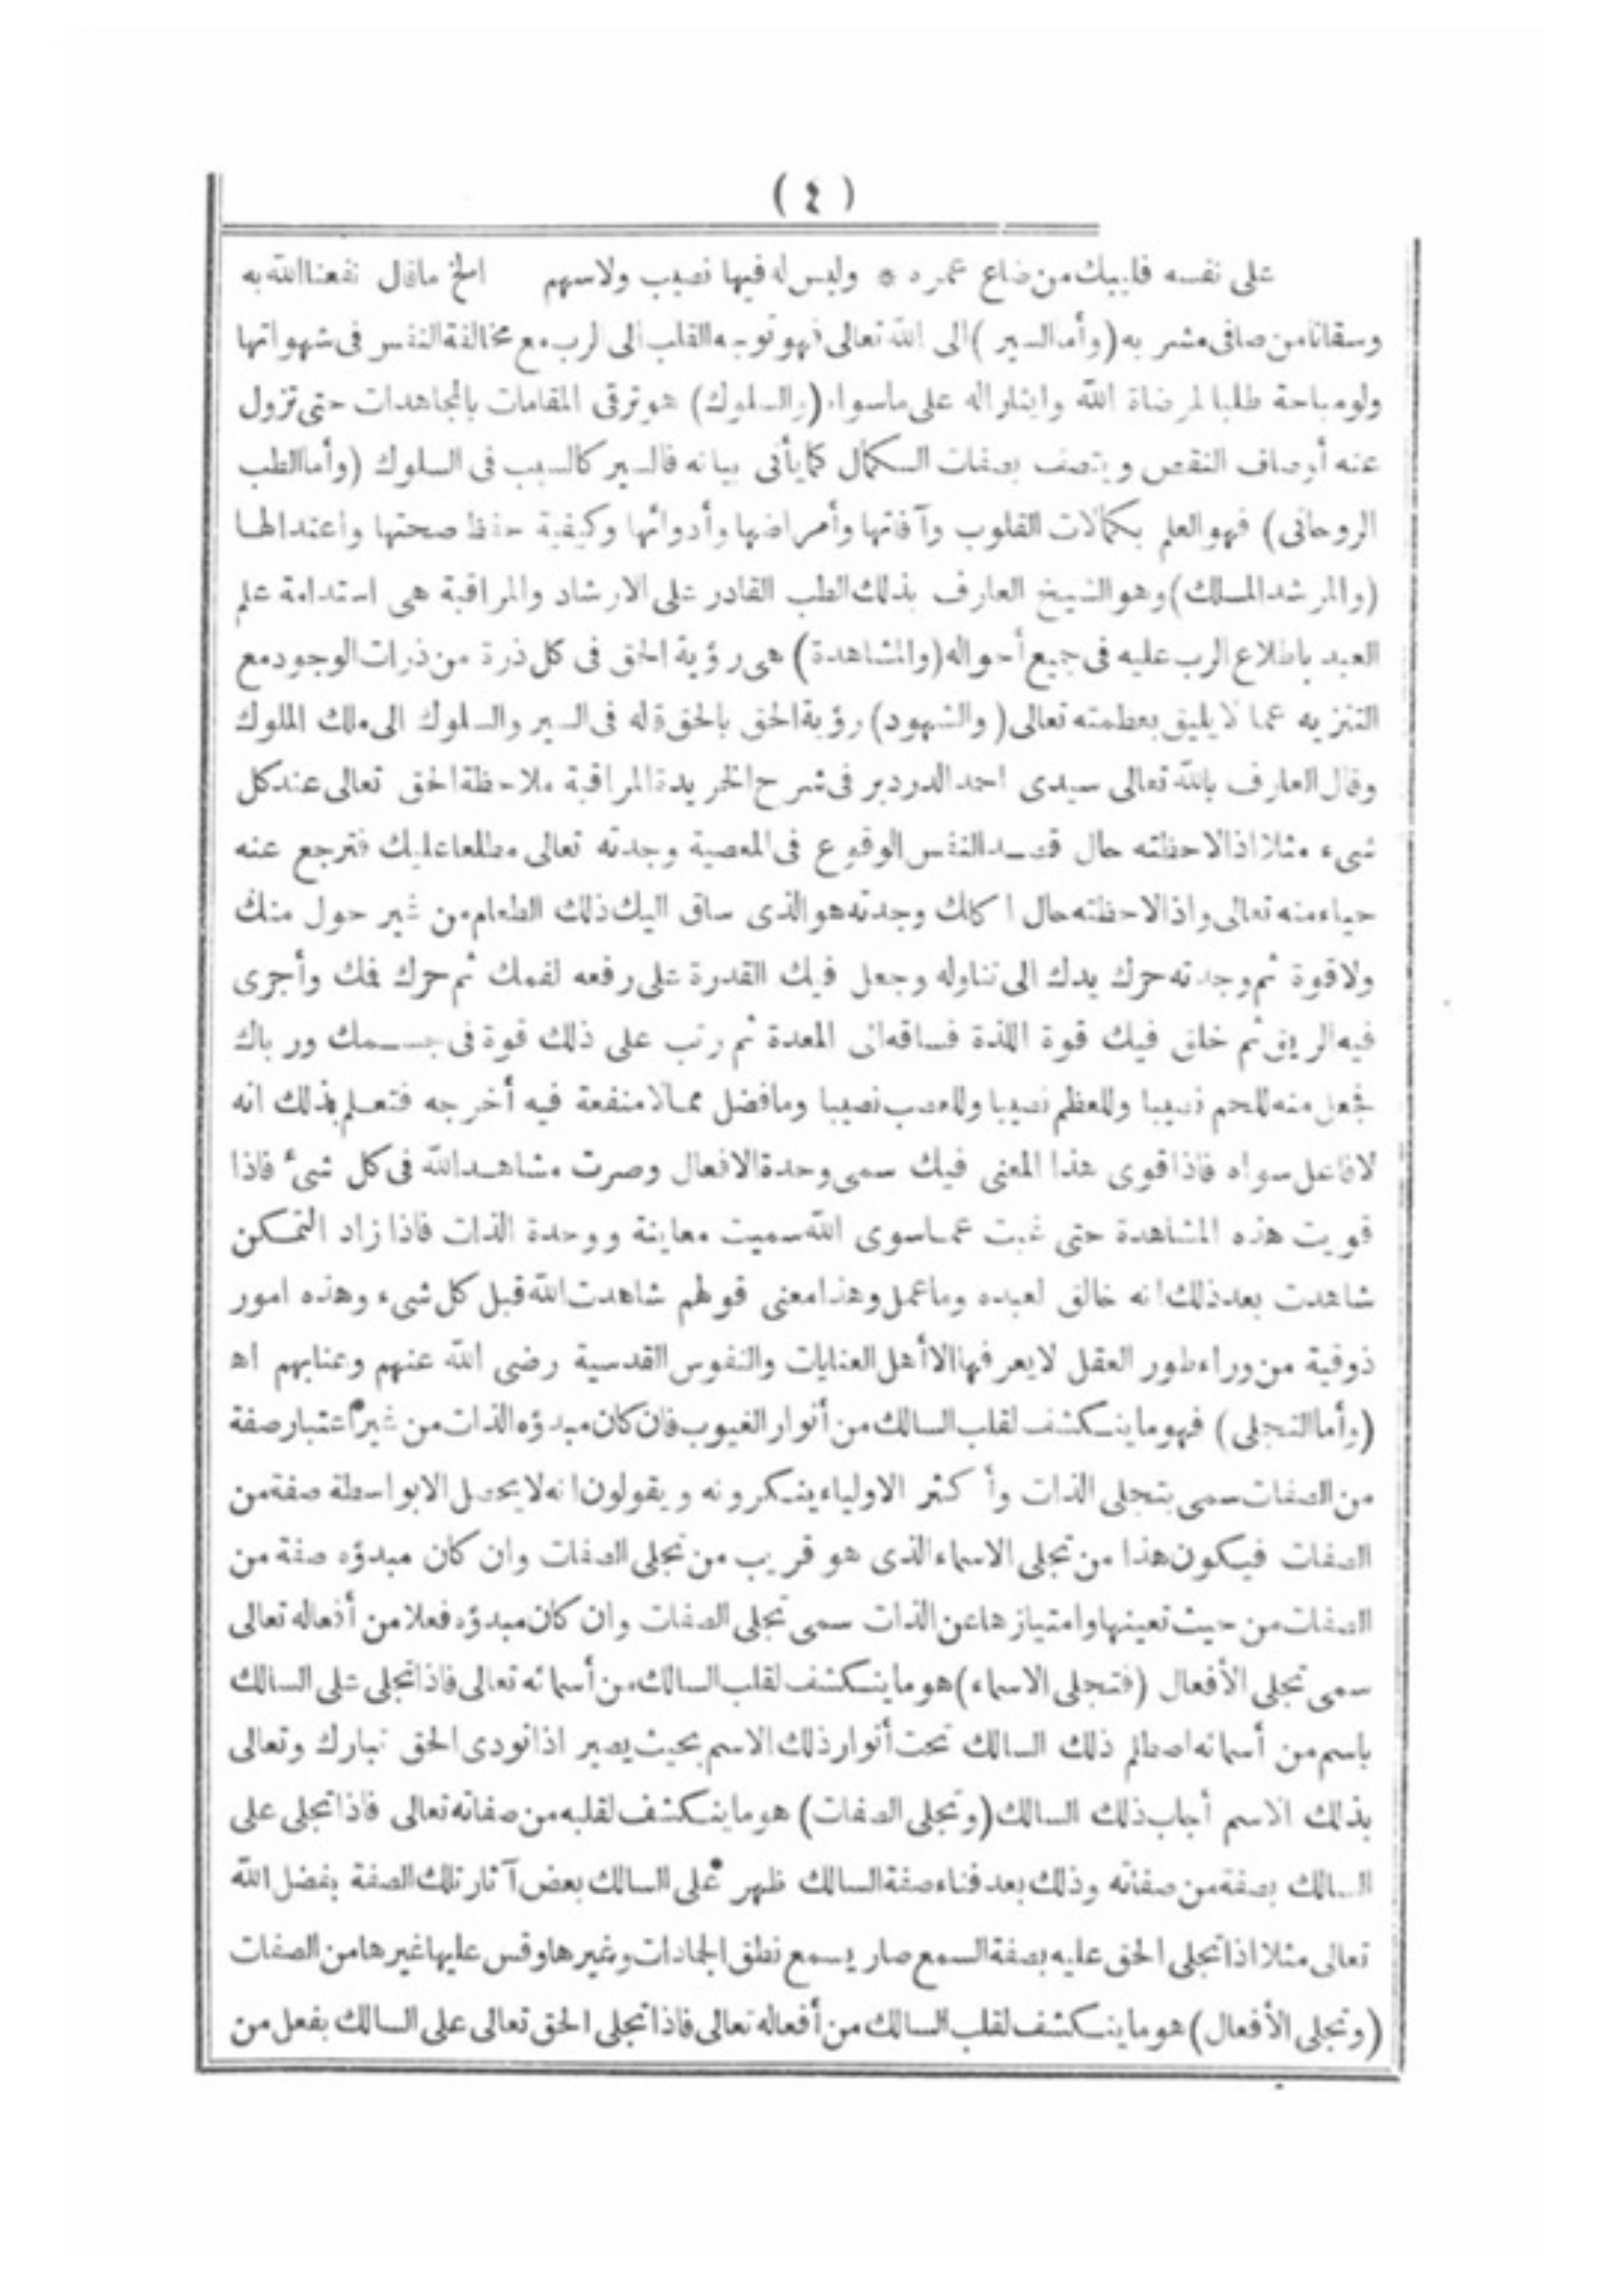 ( ٤ )
على نفسه فليبك من ضاع عمره * وليس له فيها نصيب ولا سهم الخ ما قال نفعنا الله به
وسقانا من صافى مشربه (وأما السير) الى الله تعالى فهو توجه القلب الى الرب مع مخالفة النفس فى شهواتها
ولو مباحة طلبا لمرضاة الله وايثارا له على ما سواه (والسلوك) هو ترقى المقامات بالمجاهدات حتى تزول
عنه أوصاف النقص ويتصف بصفات الكمال كما يأتى بيانه فالسير كالسبب فى السلوك (وأما الطب
الروحانى) فهو العلم بكمالات القلوب وآفاتها وأمراضها وأدوائها وكيفية حفظ صحتها واعتدالها
(والمرشد المسلك) وهو الشيخ العارف بذلك الطب القادر على الارشاد والمراقبة هى استدامة علم
العبد باطلاع الرب عليه فى جميع أحواله (والمشاهدة) هى رؤية الحق فى كل ذرة من ذرات الوجود مع
التنزيه عما لا يليق بعظمته تعالى (والشهود) رؤية الحق بالحق قاله فى السير والسلوك الى ملك الملوك
وقال العارف بالله تعالى سيدى احمد الدردير فى شرح الخريدة المراقبة ملاحظة الحق تعالى عند كل
شىء مثلا اذا لاحظته حال قصد النفس الوقوع فى المعصية وجدته تعالى مطلعا عليك فترجع عنه
حياء منه تعالى واذا لاحظته حال اكلك وجدته هو الذى ساق اليك ذلك الطعام من غير حول منك
ولا قوة ثم وجدته حرك يدك الى تناوله وجعل فيك القدرة على رفعه لفمك ثم حرك فمك وأجرى
فيه الريق ثم خلق فيك قوة اللذة فساقه الى المعدة ثم رتب على ذلك قوة فى جسمك ورباك
فجعل منه للحم نصيبا وللعظم نصيبا وللعصب نصيبا وما فضل مما لا منفعة فيه أخرجه فتعلم بذلك انه
لا فاعل سواه فاذا قوى هذا المعنى فيك سمى وحدة الافعال وصرت مشاهد الله فى كل شئ فاذا
قويت هذه المشاهدة حتى غبت عما سوى الله سميت معاينة ووحدة الذات فاذا زاد التمكن
شاهدت بعد ذلك انه خالق لعبده وما عمل وهذا معنى قولهم شاهدت الله قبل كل شىء وهذه امور
ذوقية من وراء طور العقل لا يعرفها الا أهل العنايات والنفوس القدسية رضى الله عنهم وعنا بهم اه
(وأما التجلى) فهو ما ينكشف لقلب السالك من أنوار الغيوب فان كان مبدؤه الذات من غير اعتبار صفة
من الصفات سمى بتجلى الذات وأكثر الاولياء ينكرونه ويقولون انه لا يحصل الا بواسطة صفة من
الصفات فيكون هذا من تجلى الاسماء الذى هو قريب من تجلى الصفات وان كان مبدؤه صفة من
الصفات من حيث تعينها وامتيازها عن الذات سمى تجلى الصفات وان كان مبدؤه فعلا من أفعاله تعالى
سمى تجلى الأفعال (فتجلى الاسماء) هو ما ينكشف لقلب السالك من أسمائه تعالى فاذا تجلى على السالك
باسم من أسمائه اصطلم ذلك السالك تحت أنوار ذلك الاسم بحيث يصير اذا نودى الحق تبارك وتعالى
بذلك الاسم أجاب ذلك السالك (وتجلى الصفات) هو ما ينكشف لقلبه من صفاته تعالى فاذا تجلى على
السالك بصفة من صفاته وذلك بعد فناء صفة السالك ظهر على السالك بعض آثار تلك الصفة بفضل الله
تعالى مثلا اذا تجلى الحق عليه بصفة السمع صار يسمع نطق الجمادات وغيرها وقس عليها غيرها من الصفات
(وتجلى الأفعال) هو ما ينكشف لقلب السالك من أفعاله تعالى فاذا تجلى الحق تعالى على السالك بفعل من